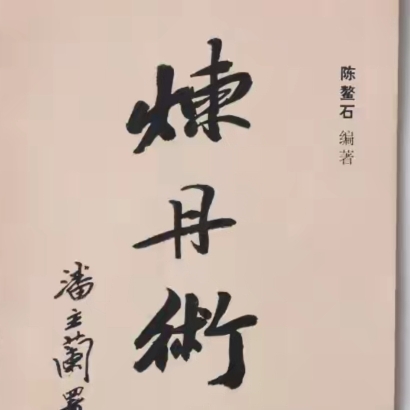 陈鳌石 编著
煉丹術
潘主蘭署